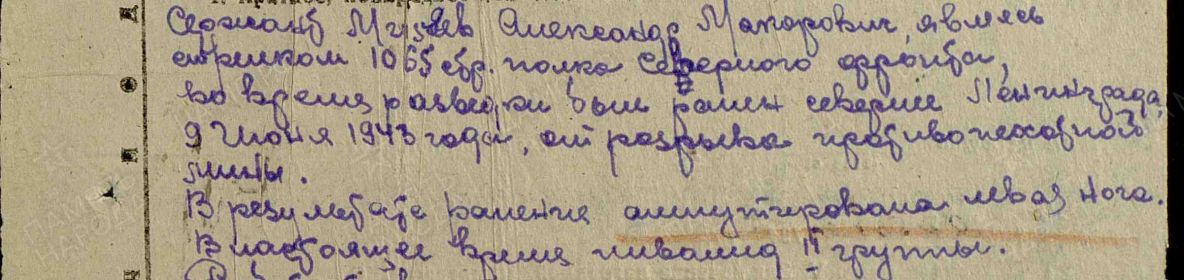 Сержант Мигаев Александр Макарович, являясь
стрелком 1065 стр. полка Северного фронта,
во время разведки был ранен севернее Ленинграда,
9 Июня 1943 года, от разрыва противопехотной
мины.
В результате ранения ампутирована левая нога.
В настоящее время инвалид II группы.